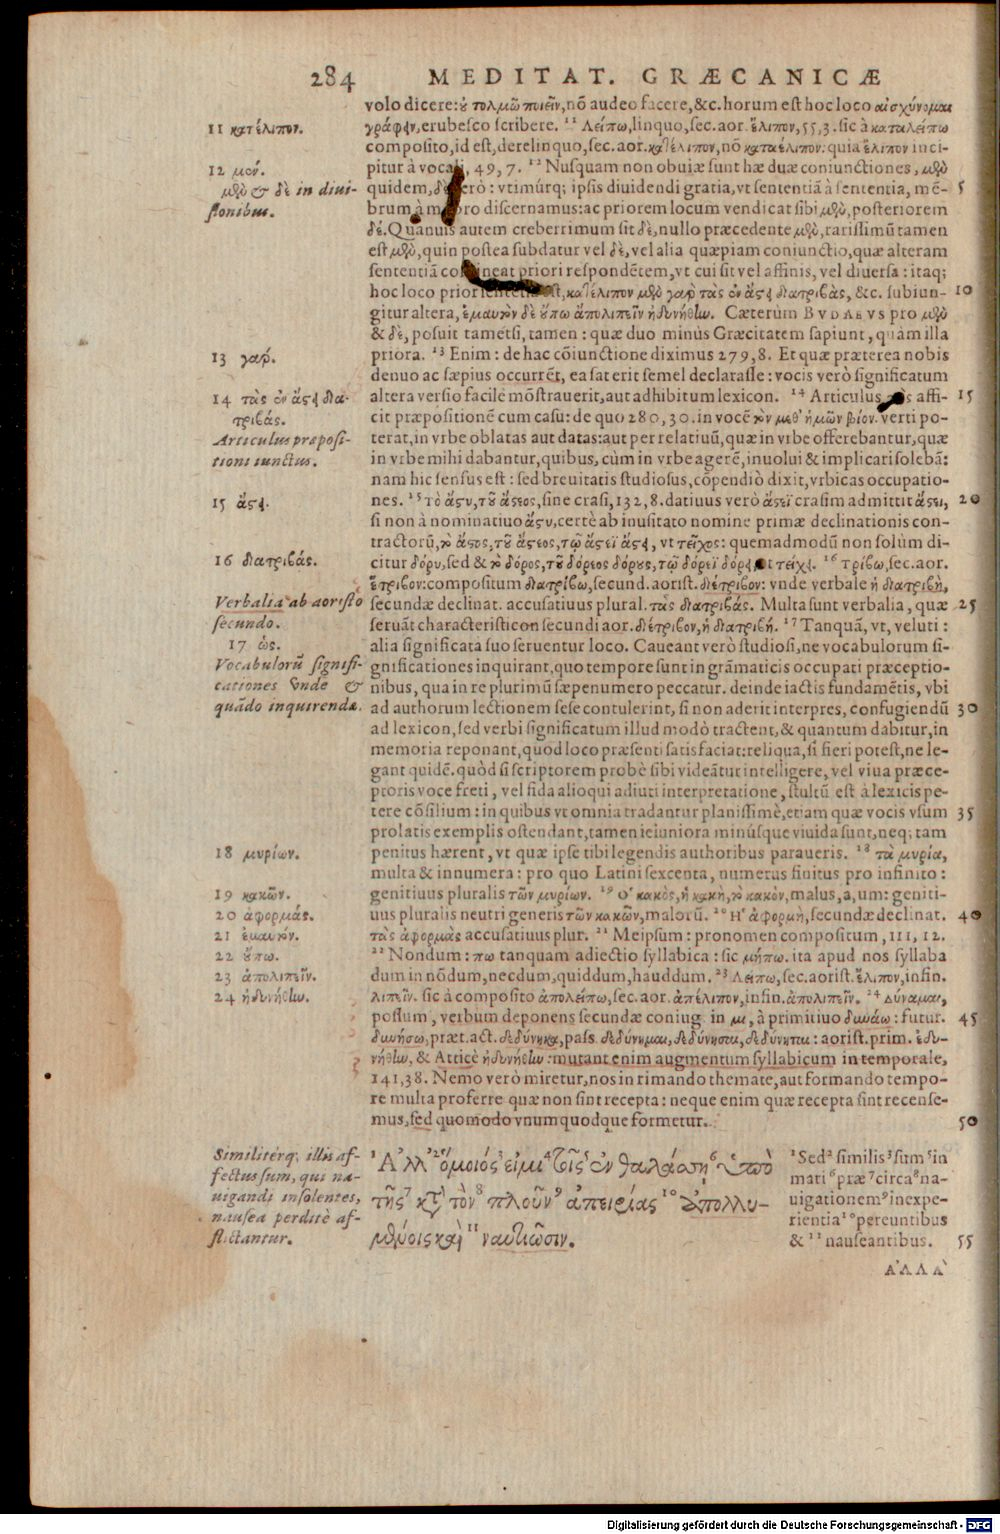 284 MEDITAT. GRÆCANICÆ
volo dicere: οὐ τολμῶ ποιεῖν, nō audeo facere, &c. horum est hoc loco αἰσχύνομαι
11 κατέλιπον.
γράφειν, erubesco scribere. 11 Λείπω, linquo, sec. aor. ἔλιπον, 55, 3. sic à καταλείπω
composito, id est, derelinquo, sec. aor. κατέλιπον, nō καταέλιπον: quia ἔλιπον inci-
12 μὲν.
pitur à vocali, 49, 7. 12 Nusquam non obuiæ sunt hæ duæ coniunctiones, μὲν
μὲν & δὲ in diui-
quidem, δὲ verò: vtimúrq; ipsis diuidendi gratia, vt sententiā à sententia, mē- 5
sionibus.
brum à membro discernamus: ac priorem locum vendicat sibi μὲν, posteriorem
δέ. Quanuis autem creberrimum sit δὲ, nullo præcedente μὲν, rarissimū tamen
est μὲν, quin postea subdatur vel δὲ, vel alia quæpiam coniunctio, quæ alteram
sententiā contineat priori respondētem, vt cui sit vel affinis, vel diuersa: itaq;
hoc loco prior sententia est, κατέλιπον μὲν γὰρ τὰς ἐν ἄστει διατριβὰς, &c. subiun- 10
gitur altera, ἐμαυτὸν δὲ οὔπω ἀπολιπεῖν ἠδυνήθην. Cæterùm BVDAEVS pro μὲν
& δὲ, posuit tametsi, tamen: quæ duo minùs Græcitatem sapiunt, quàm illa
13 γάρ.
priora. 13 Enim: de hac cōiunctione diximus 279, 8. Et quæ præterea nobis
denuo ac sæpius occurrēt, ea sat erit semel declarasse: vocis verò significatum
14 τὰς ἐν ἄστει δια-
altera versio facilè mōstrauerit, aut adhibitum lexicon. 14 Articulus τὰς affi- 15
τριβάς.
cit præpositionē cum casu: de quo 280, 30. in vocē τὸν μεθ' ἡμῶν βίον. verti po-
Articulus præposi-
terat, in vrbe oblatas aut datas: aut per relatiuū, quæ in vrbe offerebantur, quæ
tioni iunctus.
in vrbe mihi dabantur, quibus, cùm in vrbe agerē, inuolui & implicari solebā:
nam hic sensus est: sed breuitatis studiosus, cōpendiò dixit, vrbicas occupatio-
15 ἄστει.
nes. 15 Τὸ ἄστυ, τοῦ ἄστεος, sine crasi, 132, 8. datiuus verò ἄστεϊ crasim admittit ἄστει, 20
si non à nominatiuo ἄστυ, certè ab inusitato nomine primæ declinationis con-
tractorū, τὸ ἄστος, τοῦ ἄστεος, τῷ ἄστεϊ ἄστει, vt τεῖχος: quemadmodū non solùm di-
16 διατριβάς.
citur δόρυ, sed & τὸ δόρος, τοῦ δόρεος δόρους, τῷ δόρεϊ δόρει, vt τείχει. 16 Τρίβω, sec. aor.
ἔτριβον: compositum διατρίβω, secund. aorist. διέτριβον: vnde verbale ἡ διατριβὴ,
Verbalia ab aoristo
secundæ declinat. accusatiuus plural. τὰς διατριβάς. Multa sunt verbalia, quæ 25
secundo.
seruāt characteristicon secundi aor. διέτριβον, ἡ διατριβή. 17 Tanquā, vt, veluti:
17 ὡς.
alia significata suo seruentur loco. Caueant verò studiosi, ne vocabulorum si-
Vocabulorū signifi-
gnificationes inquirant, quo tempore sunt in grāmaticis occupati præceptio-
cationes vnde &
nibus, qua in re plurimū sæpenumero peccatur. deinde iactis fundamētis, vbi
quādo inquirendæ.
ad authorum lectionem sese contulerint, si non aderit interpres, confugiendū 30
ad lexicon, sed verbi significatum illud modò tractent, & quantum dabitur, in
memoria reponant, quod loco præsenti satisfaciat: reliqua, si fieri potest, ne le-
gant quidē. quòd si scriptorem probè sibi videātur intelligere, vel viua præce-
ptoris voce freti, vel fida alioqui adiuti interpretatione, stultū est à lexicis pe-
tere cōsilium: in quibus vt omnia tradantur planissimè, etiam quæ vocis vsum 35
prolatis exemplis ostendant, tamen ieiuniora minúsque viuida sunt, neq; tam
18 μυρίων.
penitus hærent, vt quæ ipse tibi legendis authoribus paraueris. 18 τὰ μυρία,
multa & innumera: pro quo Latini sexcenta, numerus finitus pro infinito:
19 κακῶν.
genitiuus pluralis τῶν μυρίων. 19 Ὁ κακὸς, ἡ κακὴ, τὸ κακὸν, malus, a, um: geniti-
20 ἀφορμάς.
uus pluralis neutri generis τῶν κακῶν, malorū. 20 Ἡ ἀφορμὴ, secundæ declinat. 40
21 ἐμαυτόν.
τὰς ἀφορμὰς accusatiuus plur. 21 Meipsum: pronomen compositum, 111, 12.
22 οὔπω.
22 Nondum: πω tanquam adiectio syllabica: sic μήπω. ita apud nos syllaba
23 ἀπολιπεῖν.
dum in nōdum, necdum, quiddum, hauddum. 23 Λείπω, sec. aorist. ἔλιπον, infin.
24 ἠδυνήθην.
λιπεῖν. sic à composito ἀπολείπω, sec. aor. ἀπέλιπον, infin. ἀπολιπεῖν. 24 Δύναμαι,
possum, verbum deponens secundæ coniug. in μι, à primitiuo δυνάω: futur. 45
δυνήσω, præt. act. δεδύνηκα, pass. δεδύνημαι, δεδύνησαι, δεδύνηται: aorist. prim. ἐδυ-
νήθην, & Atticè ἠδυνήθην: mutant enim augmentum syllabicum in temporale,
141, 38. Nemo verò miretur, nos in rimando themate, aut formando tempo-
re multa proferre quæ non sint recepta: neque enim quæ recepta sint recense-
mus, sed quomodo vnumquodque formetur. 50
Similitérq; illis af-
fectus sum, qui na-
uigandi insolentes,
nausea perditè af-
flictantur.
1 Ἀλλ' 2 ὅμοιός 3 εἰμι 4 τοῖς 5 ἐν θαλάσσῃ 6 ὑπὸ
τῆς 7 κατὰ τὸν 8 πλοῦν 9 ἀπειρίας 10 ἀπολλυ-
μένοις καὶ 11 ναυτιῶσιν.
1 Sed 2 similis 3 sum 5 in
mari 6 præ 7 circa 8 na-
uigationem 9 inexpe-
rientia 10 pereuntibus
& 11 nauseantibus. 55
ΑΛΛΑ
Digitalisierung gefördert durch die Deutsche Forschungsgemeinschaft - DFG